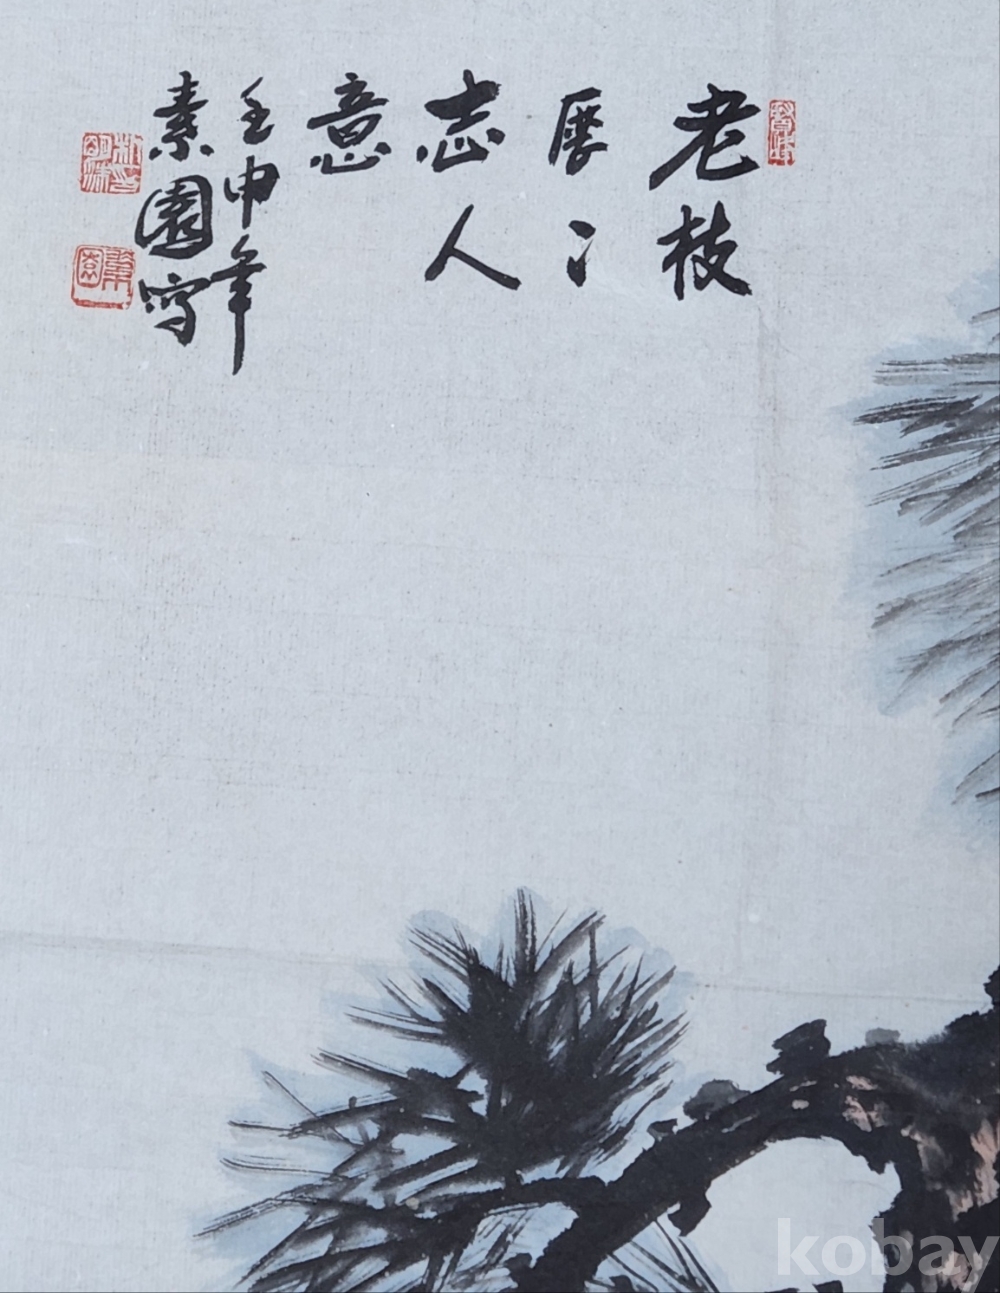 老枝
志人
意
壬申年
素園写
kobay